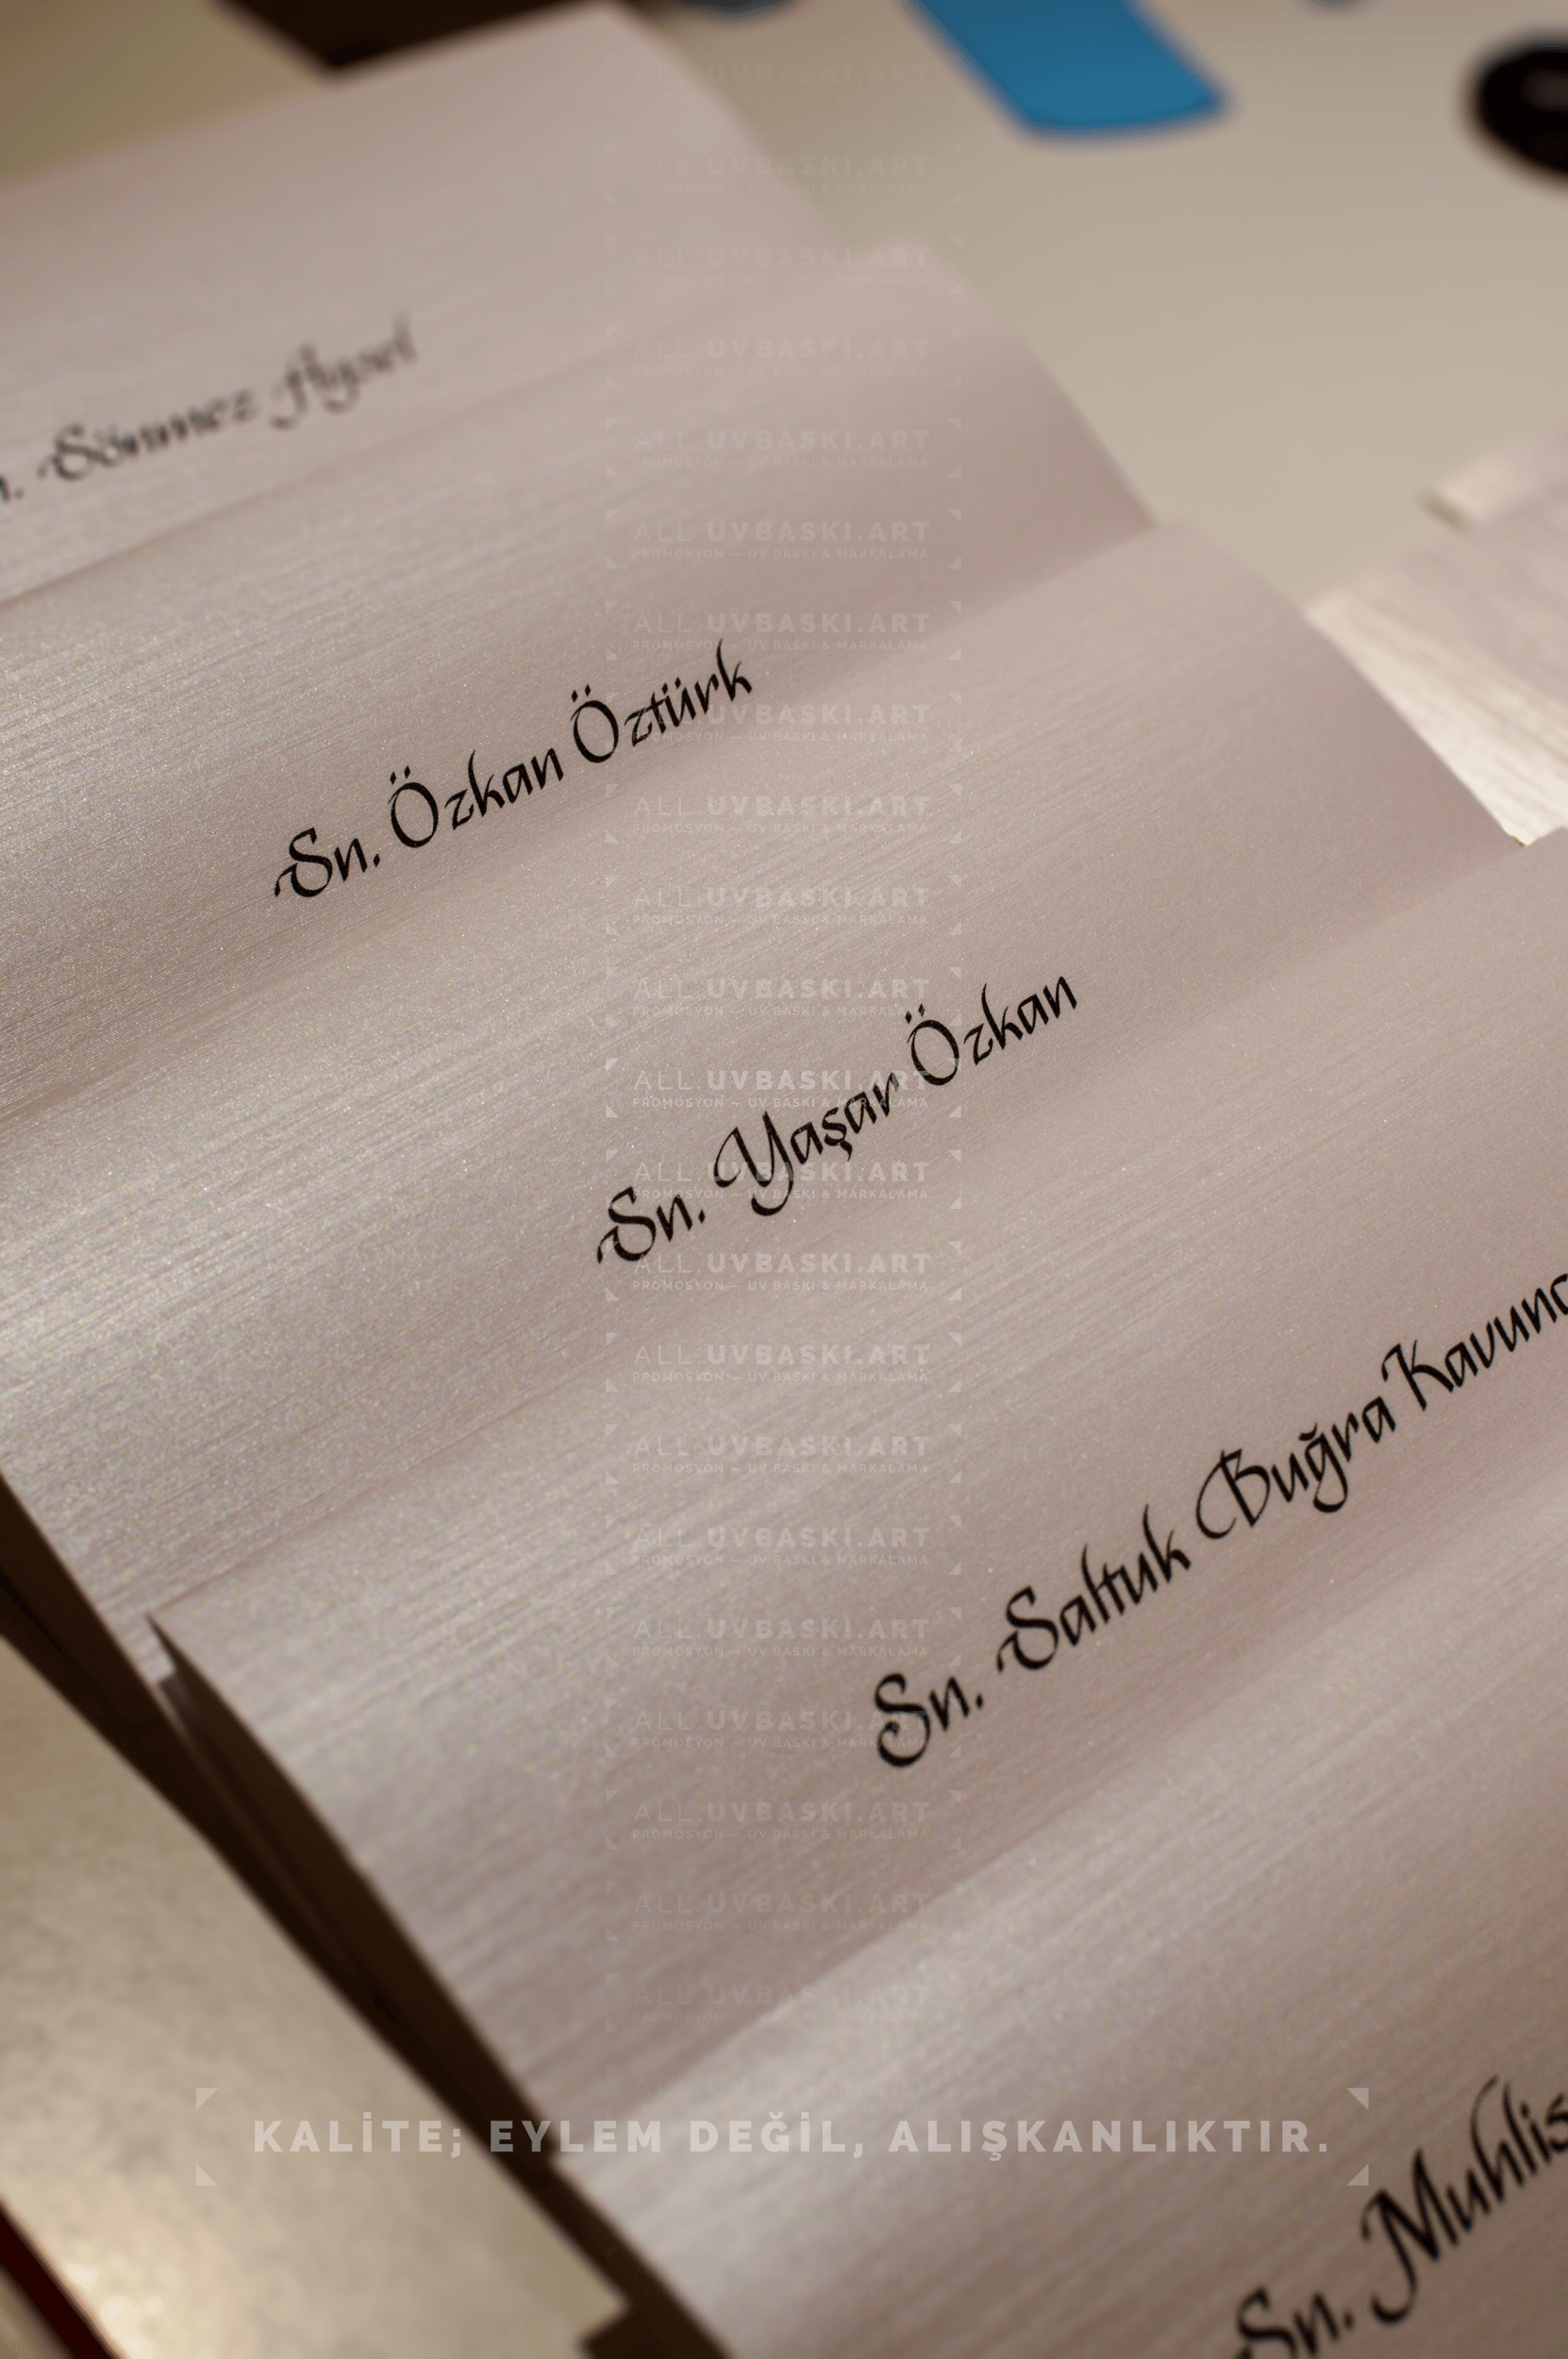 Sönmez Aysel
Sn. Özkan Öztürk
Sn. Yaşar Özkan
Sn. Saltuk Buğra
Sn.
ALL.UVBASKI.ART
PROMOSYON — UV BASKI & MARKALAMA
KALİTE; EYLEM DEĞİL, ALIŞKANLIKTIR.